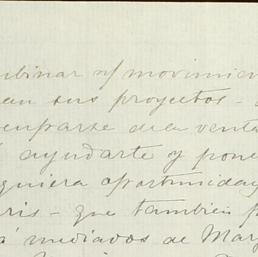 binar s/ movimien
an sus proyectos -
cuparse de la venta
á ayudarte y pone
quiera oportunidad
ris - que tambien p
á mediados de Mar